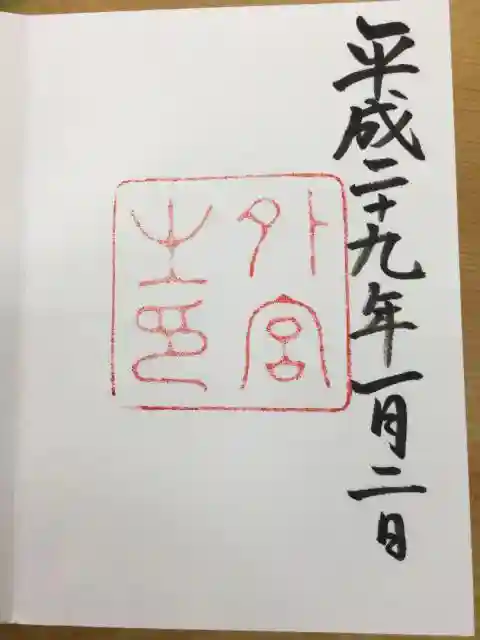 平成二十九年一月二日
外宮
之印